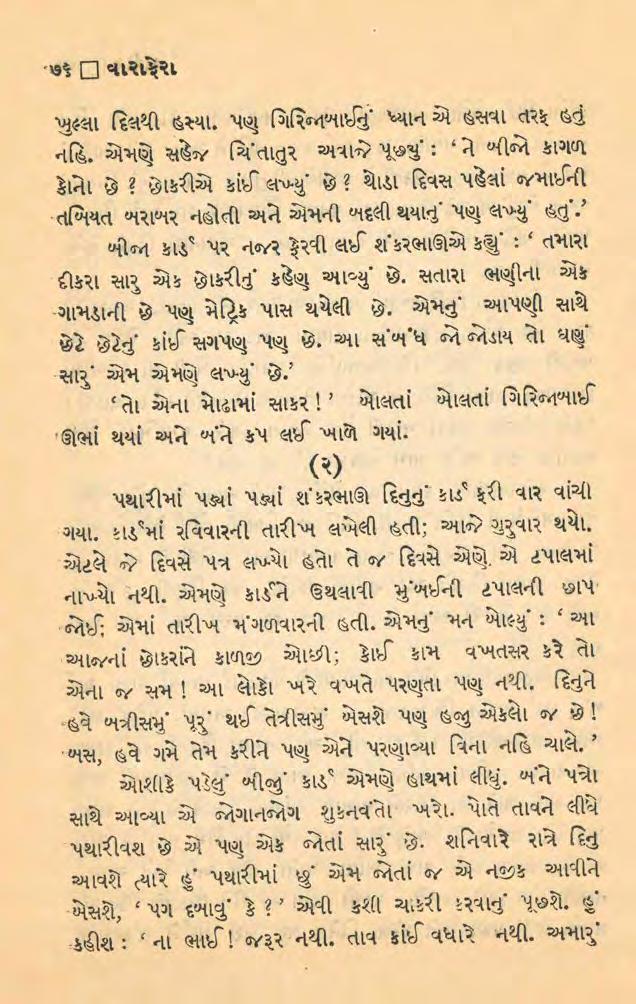 ૭૬ □ વારાફેરા
ખુલ્લા દિલથી હસ્યા. પણ ગિરિજાબાઈનું ધ્યાન એ હસવા તરફ હતું
નહિ. એમણે સહેજ ચિંતાતુર અવાજે પૂછયું : ‘ને બીજો કાગળ
કોનો છે ? છોકરીએ કાંઈ લખ્યું છે? થોડા દિવસ પહેલાં જમાઈની
તબિયત બરાબર નહોતી અને એમની બદલી થયાનું પણ લખ્યું હતું.’
બીજા કાર્ડ પર નજર ફેરવી લઈ શંકરભાઊએ કહ્યું : ‘ તમારા
દીકરા સારુ એક છોકરીનું કહેણ આવ્યું છે. સતારા ભણીના એક
ગામડાની છે પણ મેટ્રિક પાસ થયેલી છે. એમનું આપણી સાથે
છેટે છેટેનું કાંઈ સગપણ પણ છે. આ સંબંધ જો જોડાય તો ઘણું
સારું એમ એમણે લખ્યું છે.’
‘તો એના મોઢામાં સાકર ! ’ બોલતાં બોલતાં ગિરિજાબાઈ
ઊભાં થયાં અને બંને કપ લઈ ખાળે ગયાં.
(૨)
પથારીમાં પડ્યાં પડ્યાં શંકરભાઊ દિનુનું કાર્ડ ફરી વાર વાંચી
ગયા. કાર્ડમાં રવિવારની તારીખ લખેલી હતી; આજે ગુરુવાર થયો.
એટલે જે દિવસે પત્ર લખ્યો હતો તે જ દિવસે એણે એ ટપાલમાં
નાખ્યો નથી. એમણે કાર્ડને ઉથલાવી મુંબઈની ટપાલની છાપ
જોઈ; એમાં તારીખ મંગળવારની હતી. એમનું મન બોલ્યું : ‘ આ
આજનાં છોકરાંને કાળજી ઓછી; કોઈ કામ વખતસર કરે તો
એના જ સમ ! આ લોકો ખરે વખતે પરણતા પણ નથી. દિનુને
હવે બત્રીસમું પૂરું થઈ તેત્રીસમું બેસશે પણ હજુ એકલો જ છે !
બસ, હવે ગમે તેમ કરીને પણ એને પરણાવ્યા વિના નહિ ચાલે. ’
ઓશીકે પડેલું બીજું કાર્ડ એમણે હાથમાં લીધું. બંને પત્રો
સાથે આવ્યા એ જોગાનજોગ શુકનવંતો ખરો. પોતે તાવને લીધે
પથારીવશ છે એ પણ એક જોતાં સારું છે. શનિવારે રાત્રે દિનુ
આવશે ત્યારે હું પથારીમાં છું એમ જોતાં જ એ નજીક આવીને
બેસશે, ‘ પગ દબાવું કે ? ’ એવી કશી ચાકરી કરવાનું પૂછશે. હું
કહીશ : ‘ ના ભાઈ ! જરૂર નથી. તાવ કાંઈ વધારે નથી. અમારું